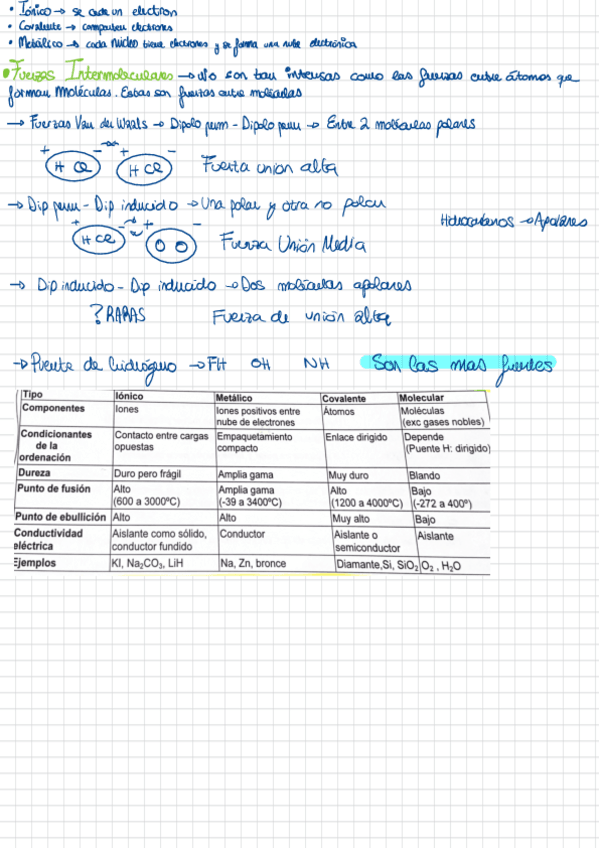 • Iónico → se cede un electron
• Covalente → comparten electrones
• Metálico → cada núcleo tiene electrones y se forma una nube electrónica
• Fuerzas Intermoleculares → No son tan intensas como las fuerzas entre átomos que
forman moléculas. Estas son fuerzas entre moléculas
→ Fuerzas Van der Waals → Dipolo perm - Dipolo perm → Entre 2 moléculas polares
+ - + -
H Cl H Cl Fuerza union alta
→ Dip perm - Dip inducido → Una polar y otra no polar
Hidrocarbonos → Apolares
+ - + -
H Cl O O Fuerza Unión Media
→ Dip inducido - Dip inducido → Dos moléculas apolares
? RARAS Fuerza de unión alta
→ Puente de hidrógeno → FH OH NH Son las mas fuertes
Tipo Iónico Metálico Covalente Molecular
Componentes Iones Iones positivos entre nube de electrones Átomos Moléculas (exc gases nobles)
Condicionantes de la ordenación Contacto entre cargas opuestas Empaquetamiento compacto Enlace dirigido Depende (Puente H: dirigido)
Dureza Duro pero frágil Amplia gama Muy duro Blando
Punto de fusión Alto (600 a 3000ºC) Amplia gama (-39 a 3400ºC) Alto (1200 a 4000ºC) Bajo (-272 a 400º)
Punto de ebullición Alto Alto Muy alto Bajo
Conductividad eléctrica Aislante como sólido, conductor fundido Conductor Aislante o semiconductor Aislante
Ejemplos KI, Na₂CO₃, LiH Na, Zn, bronce Diamante,Si, SiO₂ O₂ , H₂O